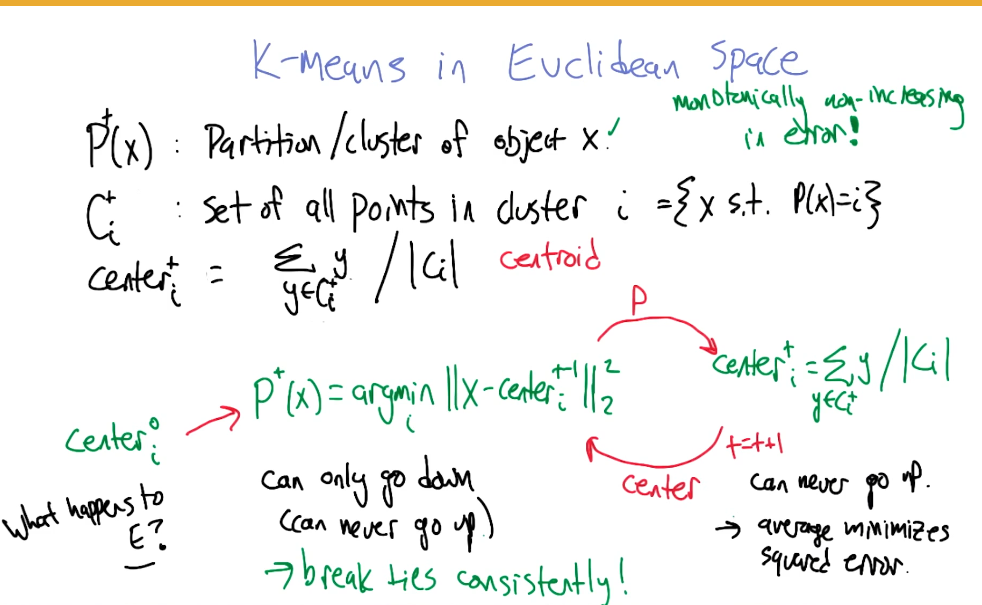 K-means in Euclidean Space
monotonically non-increasing
in error!
Pᵗ(x) : Partition/cluster of object x ✓
Cᵢᵗ : set of all points in cluster i = {x s.t. P(x)=i}
centerᵢᵗ = Σ_{y∈Cᵢᵗ} y / |Cᵢ| centroid
P
Pᵗ(x) = argminᵢ ||x-centerᵢᵗ⁻¹||₂²
centerᵢᵗ = Σ_{y∈Cᵢᵗ} y / |Cᵢ|
centerᵢ⁰
t=t+1
center
What happens to
E?
can only go down
(can never go up)
→ break ties consistently!
can never go up.
→ average minimizes
squared error.